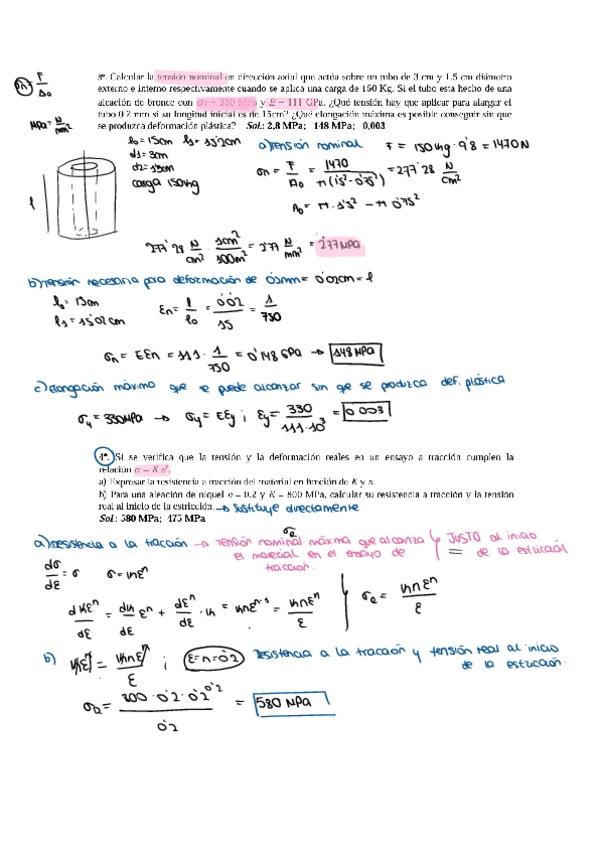 σn = F/A₀
3º. Calcular la tensión nominal en dirección axial que actúa sobre un tubo de 3 cm y 1.5 cm diámetro
externo e interno respectivamente cuando se aplica una carga de 150 Kg. Si el tubo esta hecho de una
aleación de bronce con σy = 330 MPa y E = 111 GPa. ¿Qué tensión hay que aplicar para alargar el
tubo 0.2 mm si su longitud inicial es de 15cm? ¿Qué elongación máxima es posible conseguir sin que
se produzca deformación plástica? Sol.: 2,8 MPa; 148 MPa; 0,003
MPa = N/mm²
l₀ = 15cm
d1 = 3cm
d2 = 1'5cm
carga 150kg
l
a) Tensión nominal F = 150kg · 9'8 = 1470N
σn = F/A₀ = 1470/π(1'5² - 0'75²) = 277'28 N/cm²
A₀ = π · 1'5² - π 0'75²
277'28 N/cm² · 1cm²/100m² = 2'77 N/mm² = 2'77MPa
b) Tensión necesaria para deformación de 0'2mm = 0'02cm = l
l₀ = 15cm
l₁ = 15'02cm
εn = l/l₀ = 0'02/15 = 1/750
σn = Eεn = 111 · 1/750 = 0'148 GPa → 148 MPa
c) elongación máxima que se puede alcanzar sin que se produzca def. plástica
σy = 330MPa → σy = Eεy ; εy = 330/111·10³ = 0'003
4º. Si se verifica que la tensión y la deformación reales en un ensayo a tracción cumplen la
relación σ = K εⁿ.
a) Expresar la resistencia a tracción del material en función de K y n.
b) Para una aleación de níquel n = 0.2 y K = 800 MPa, calcular su resistencia a tracción y la tensión
real al inicio de la estricción. → sustituye directamente
Sol: 580 MPa; 475 MPa
a) resistencia a la tracción → Tensión nominal máxima que alcanza
el material en el ensayo de
tracción.
JUSTO al inicio
de la estricción
dσ/dε = σ σ = kεⁿ
dkεⁿ/dε = dk/dε εⁿ + dεⁿ/dε · k = knεⁿ⁻¹ = knεⁿ/ε
σR = knεⁿ/ε
b) kεⁿ = knεⁿ/ε ; ε = n = 0'2 resistencia a la tracción y tensión real al inicio
de la estricción.
σR = 800 · 0'2 · 0'2^0'2/0'2 = 580 MPa